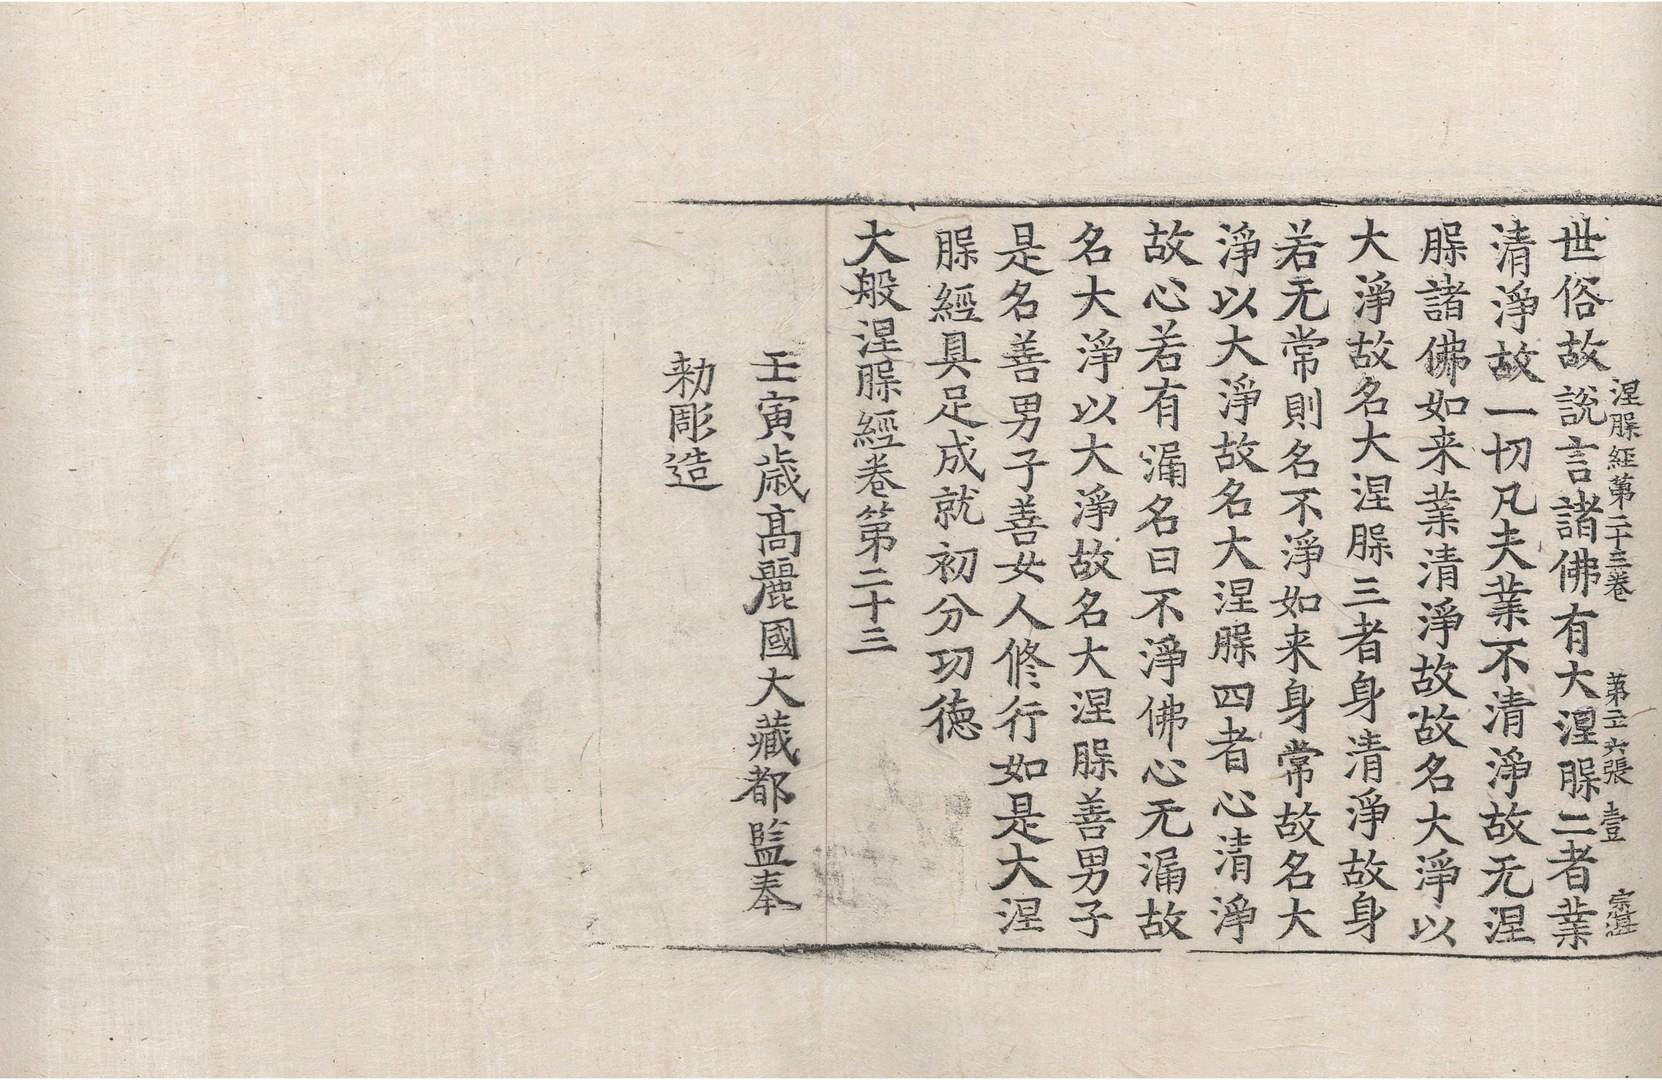 涅槃経第二十三卷 第二六張 壹
世俗故説言諸佛有大涅槃二者業
清淨故一切凡夫業不清淨故无涅
槃諸佛如来業清淨故故名大淨以
大淨故名大涅槃三者身清淨故身
若无常則名不淨如来身常故名大
淨以大淨故名大涅槃四者心清淨
故心若有漏名曰不淨佛心无漏故
名大淨以大淨故名大涅槃善男子
是名善男子善女人修行如是大涅
槃經具足成就初分功德
大般涅槃經卷第二十三
壬寅歳高麗國大藏都監奉
勅彫造